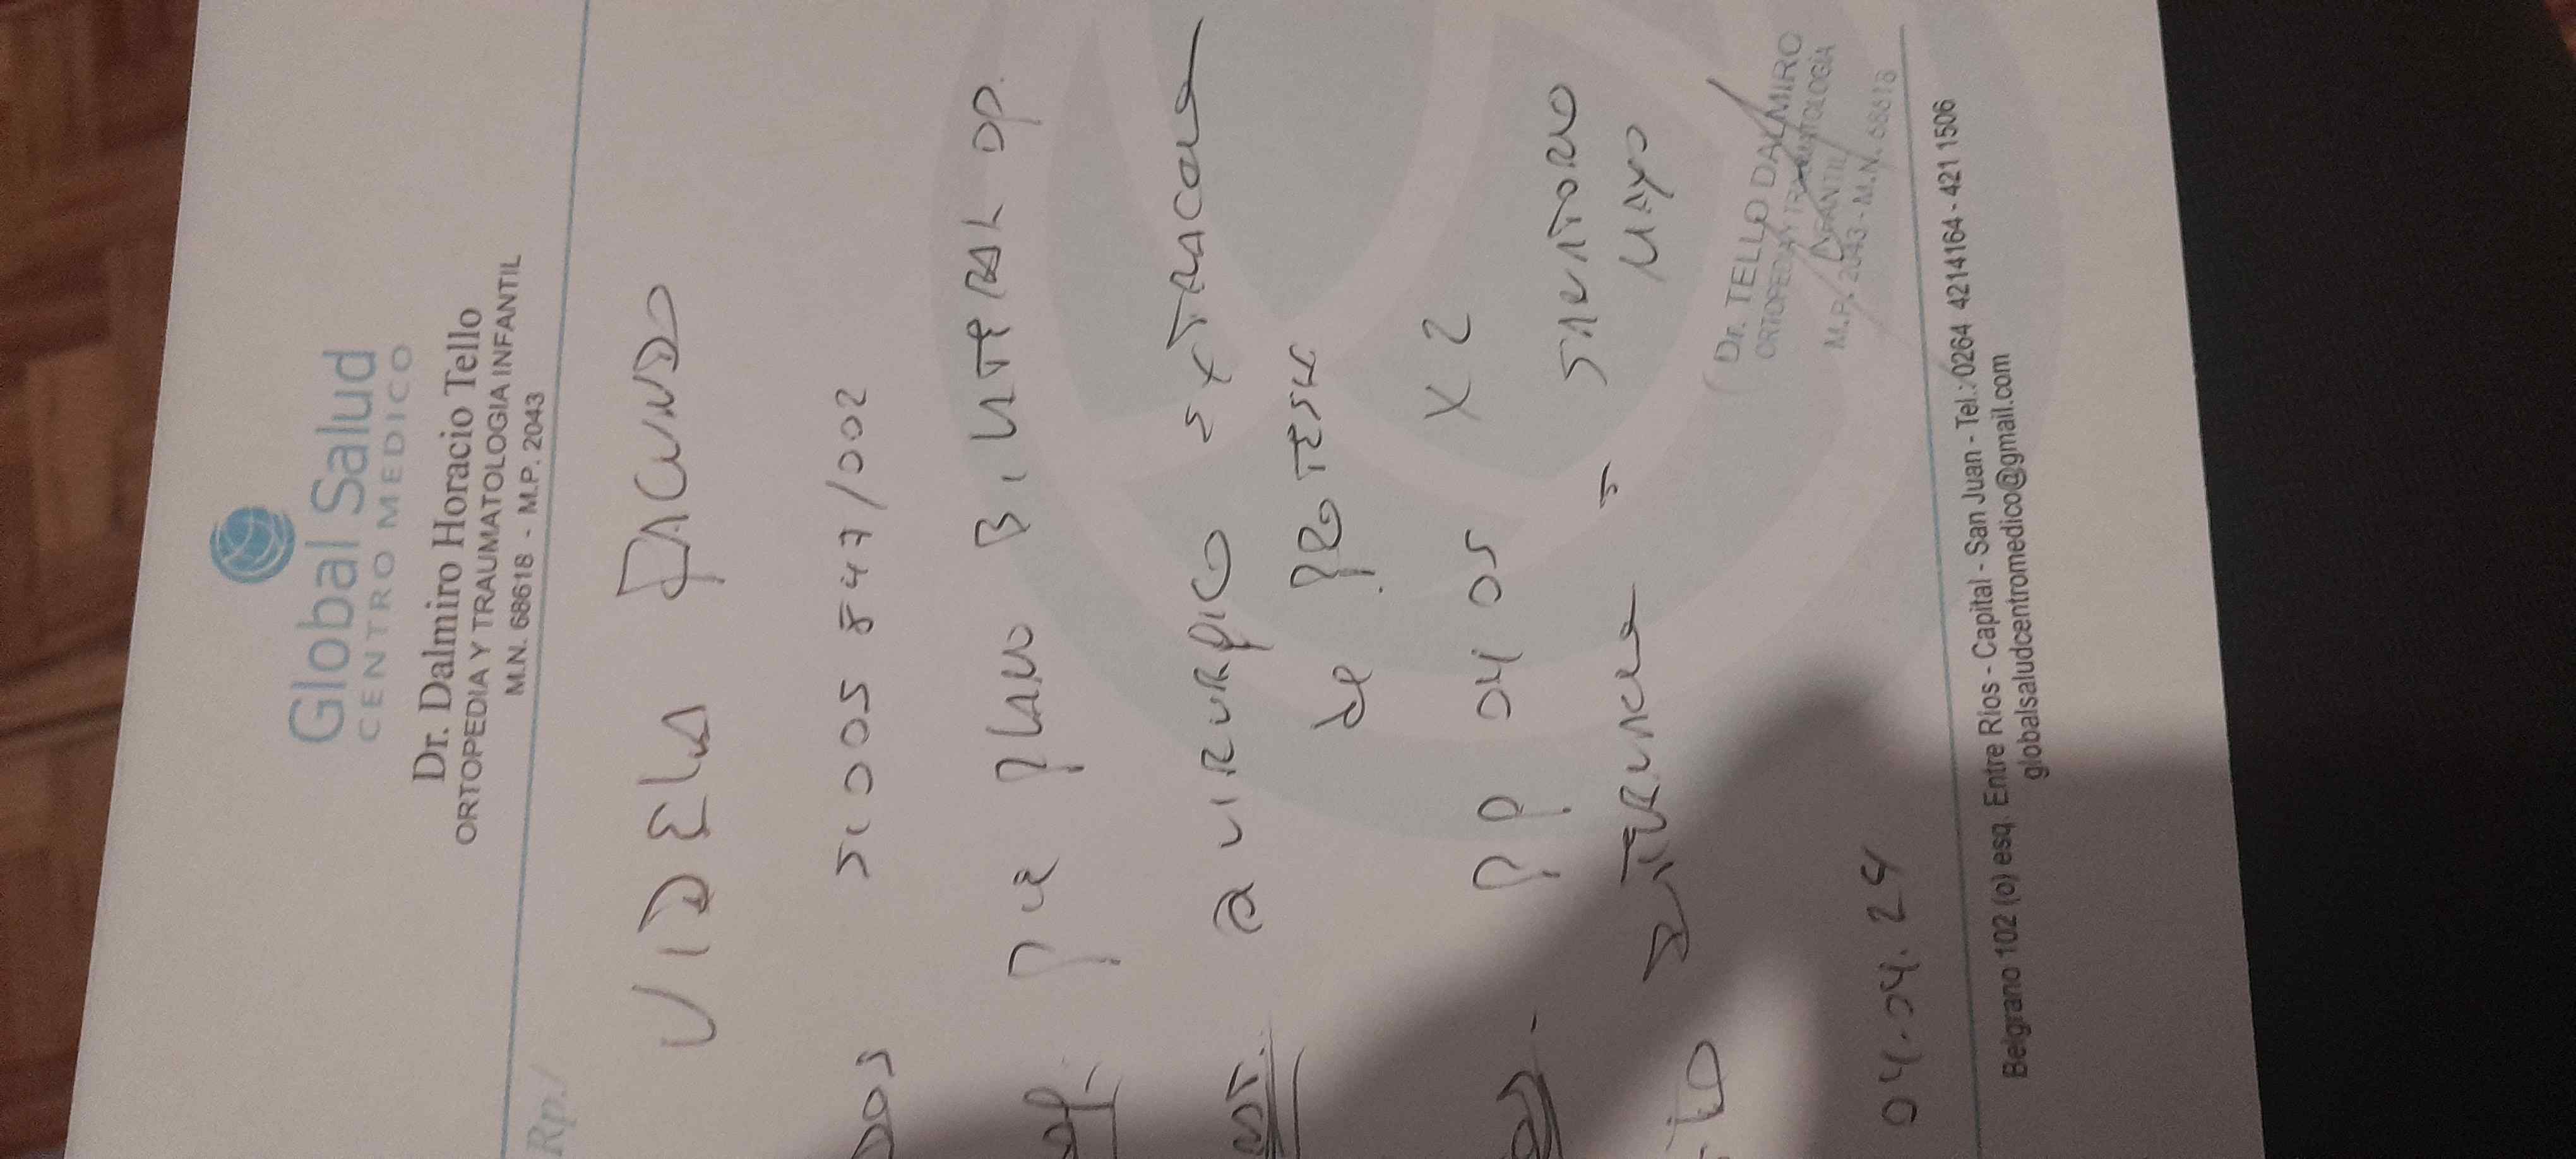 Global Salud
CENTRO MEDICO
Dr. Dalmiro Horacio Tello
ORTOPEDIA Y TRAUMATOLOGIA INFANTIL
M.N. 68618 - M.P. 2043
Rp./
VIDELA FACUNDO
51005847/002
Pie plano Bilateral op.
Quirurgico extraccion
de protesis
04 05 x 2
Sanatorio
Mayo
Dr. TELLO DALMIRO
ORTOPEDIA Y TRAUMATOLOGÍA
INFANTIL
M.P. 2043 - M.N. 68618
04.04.24
Belgrano 102 (o) esq. Entre Rios - Capital - San Juan - Tel.: 0264 4214164 - 421 1506
globalsaludcentromedico@gmail.com